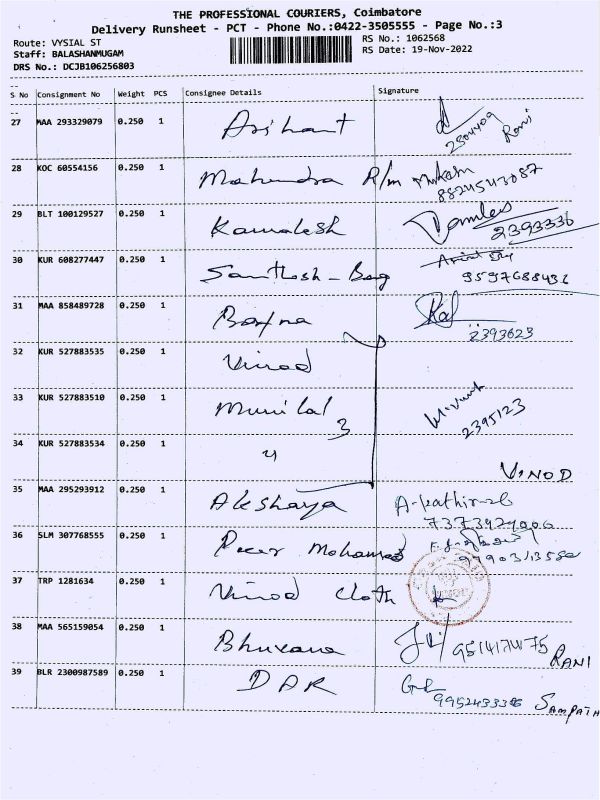 THE PROFESSIONAL COURIERS, Coimbatore
Delivery Runsheet - PCT - Phone No.:0422-3505555 - Page No.:3
Route: VYSIAL ST
RS No.: 1062568
Staff: BALASHANMUGAM
RS Date: 19-Nov-2022
DRS No.: DCJB106256803
S No Consignment No Weight PCS Consignee Details Signature
27 MAA 293329079 0.250 1 Arihant 2304409 Rani
28 KOC 60554156 0.250 1 Mahendra R/m 8824543087
29 BLT 100129527 0.250 1 Kamalesh 2393336
30 KUR 608277447 0.250 1 Santhosh - Bag 9597688436
31 MAA 858489728 0.250 1 2393623
32 KUR 527883535 0.250 1 Vinod
33 KUR 527883510 0.250 1 Munilal 3 2395123
34 KUR 527883534 0.250 1 VINOD
35 MAA 295293912 0.250 1 Akshaya
36 SLM 307768555 0.250 1 Peer Mohamed
37 TRP 1281634 0.250 1 Vinod Cloth
38 MAA 565159054 0.250 1 Bhuvana RANI
39 BLR 2300987589 0.250 1 DAR SAMPATH